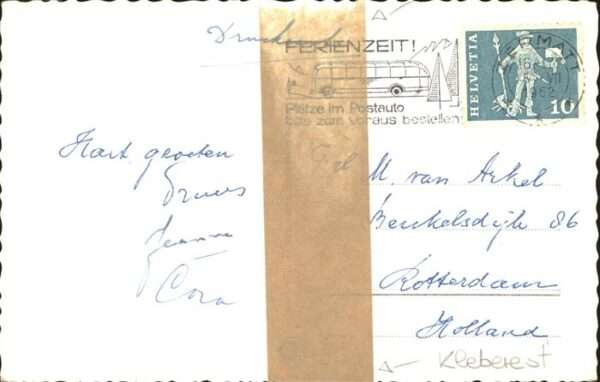 Drucksache
FERIENZEIT!
Plätze im Postauto
bitte zum voraus bestellen
HELVETIA
10
ZERMATT
1962
Hart. groeten
Jeanne
Cora
M. van Arkel
Beukelsdijk 86
Rotterdam
Holland
Klebерest